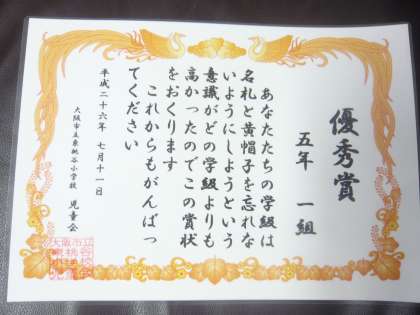 優秀賞
五年 一組
あなたたちの学級は
名札と黄帽子を忘れな
いようにしようという
意識がどの学級よりも
高かったのでこの賞状
をおくります
これからもがんばっ
てください
平成二十六年 七月十一日
大阪市立東桃谷小学校 児童会